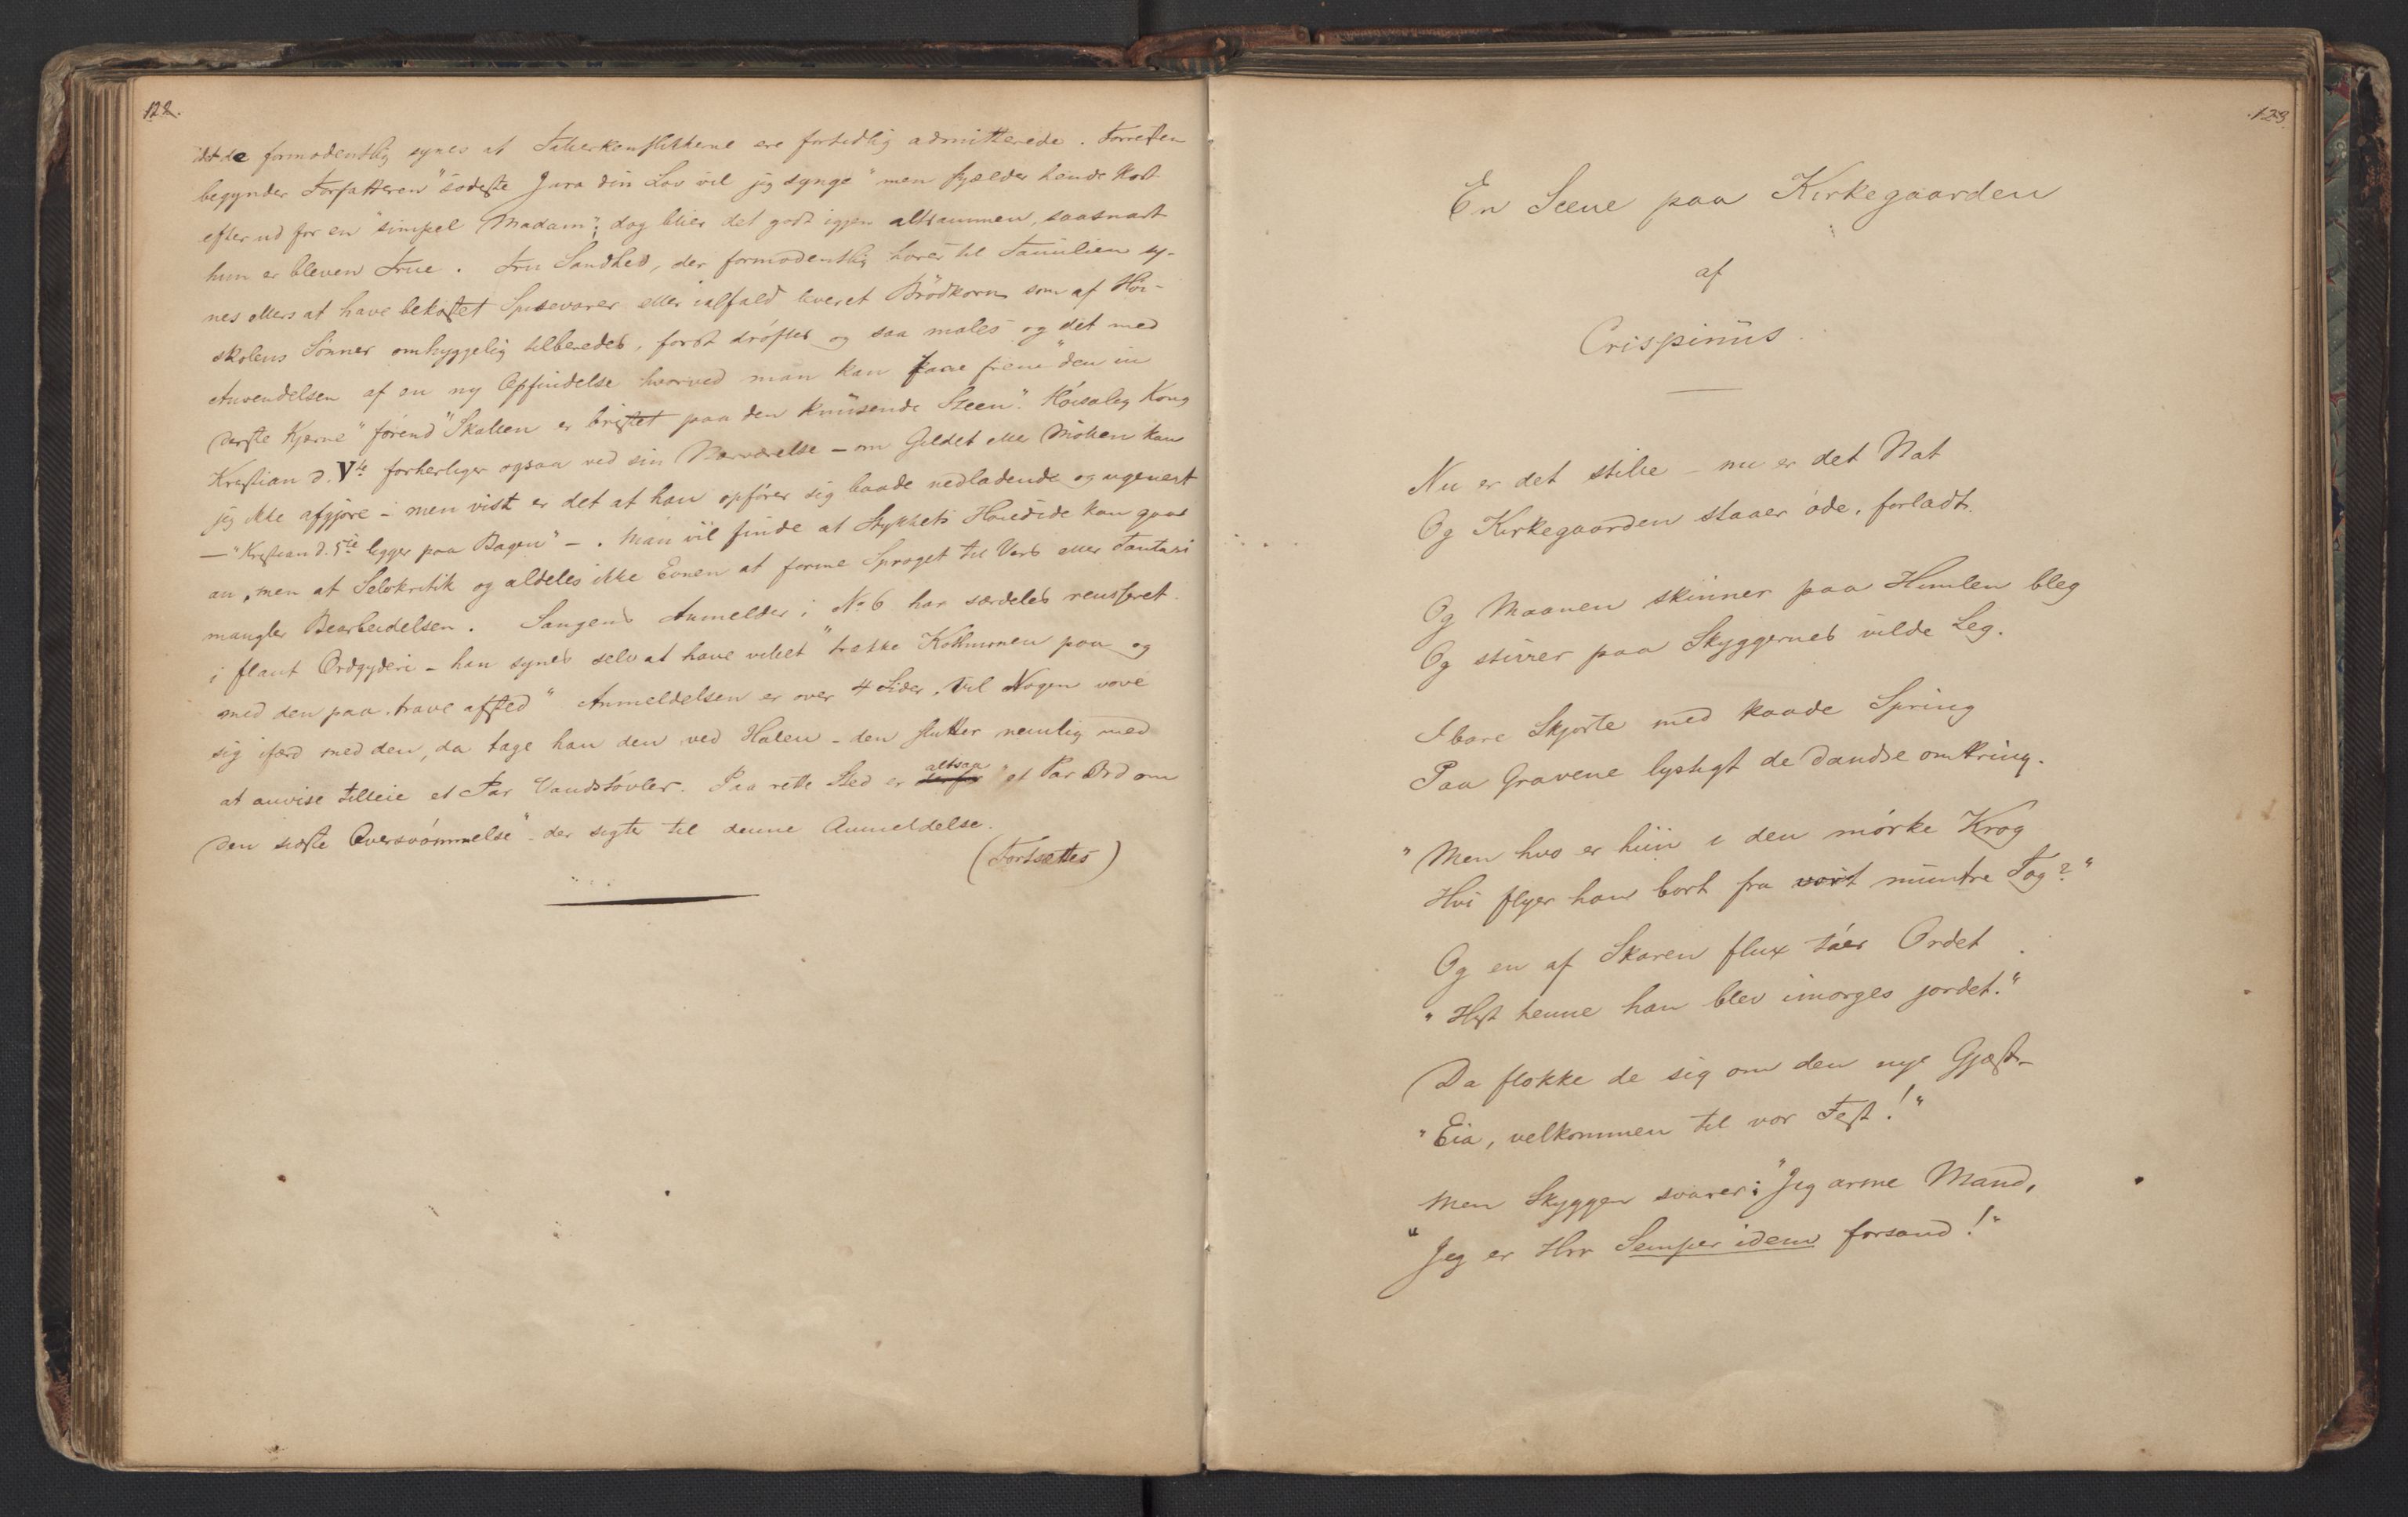 122.
idet de formodentlig synes at ere fortidlig admitterede. Forresten
begynder Forfatteren "södeste Jura din Lov vil jeg synge" men skjælder hende kort
efter ud for en "simpel Madam"; dog blier det godt igjen altsammen, saasnart
hun er bleven Frue. Fru Sandhed, der formodentlig hörer til Familien sy-
nes ellers at have bekostet Spisevarer eller ialfald leveret Brödkorn som af Höi-
skolens Sönner omhyggelig tilberedes, först dröftes og saa males og det med
Anvendelsen af en ny Opfindelse hvorved man kan faae frem "den in
derste Kjærne" förend "Skallen er bristet paa den knusende Steen". Höisalig Kong
Kristian d. Vte forherliger ogsaa ved sin Nærværelse – om Gildet eller Möllen kan
jeg ikke afgjöre – men vist er det at han opförer sig baade nedladende og ugenert
– "Kristian d. 5te ligger paa Bagen" –. Man vil finde at Stykkets Hovedide kan gaae
an, men at Selvkritik og aldeles ikke Evnen at forme Sproget til Vers eller Fantasi
mangler Bearbeidelsen. Sangens Anmelder i No 6 har særdeles reusseret
i flaut Ordgyderi – han synes selv at have villet "trække Kothurnen paa og
med den paa trave afsted" Anmeldelsen er over 4 Sider. Vil Nogen vove
sig ifærd med den, da tage han den ved Halen – den slutter nemlig med
at anvise tilleie et Par Vandstövler. Paa rette Sted er altsaa "et Par Ord om
den sidste Oversvömmelse" der sigter til denne Anmeldelse.
(Fortsættes)
123.
En Scene paa Kirkegaarden
af
Crispinus.
Nu er det stille – nu er det Nat
Og Kirkegaarden staaer öde, forladt.
Og Maanen skinner paa Himlen bleg
Og stirrer paa Skyggernes vilde Leg.
I bare Skjorte med kaade Spring
Paa Gravene lystigt de dandse omkring.
"Men hvo er hiin i den mörke Krog
Hvi flyer han bort fra vort muntre Tog?"
Og en af Skaren flux tåer Ordet
"Hist henne han blev imorges jordet."
Da flokke de sig om den nye Gjæst –
"Eia, velkommen til vor Fest!"
Men Skyggen svarer: "Jeg arme Mand,
"Jeg er Hrr Semper idem forsand!"